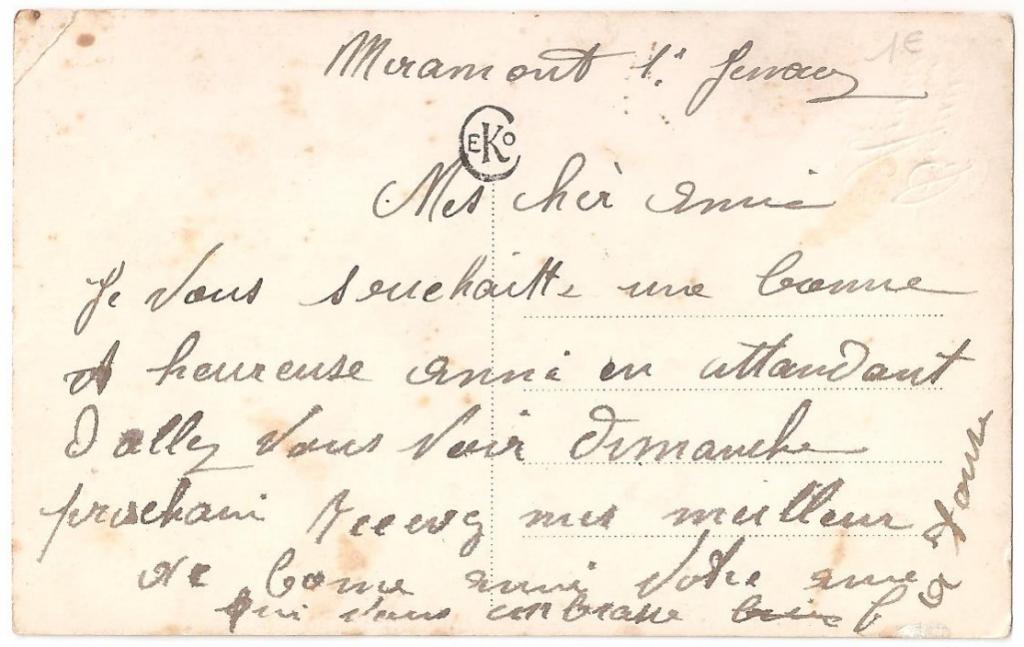 1€
Miramont 1er Janvier
EKO
Mes chèr amie
Je vous souchaitte une bonne
et heureuse anné en attandant
d allez vous voir dimanche
prochain Recevez mes meilleur
de bonne anné votre amie
qui vous embrasse